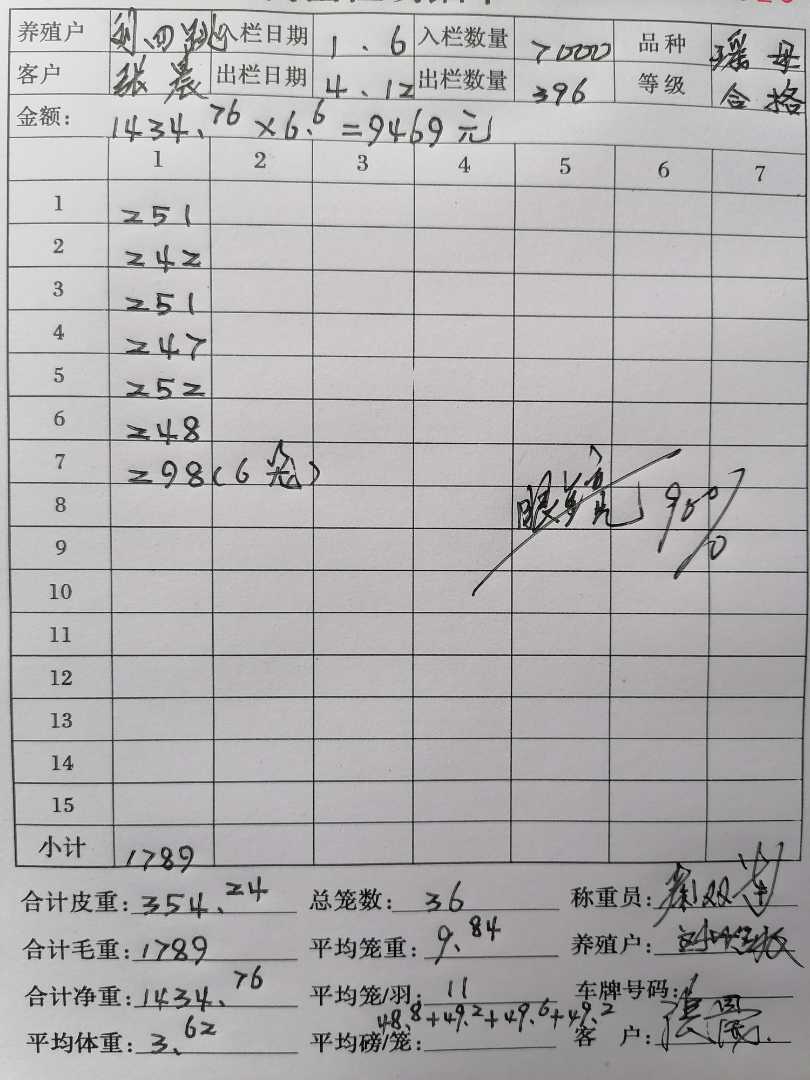 养殖户 入栏日期 1.6 入栏数量 7000 品种 瑶母
客户 张晨 出栏日期 4.12 出栏数量 396 等级 合格
金额: 1434.76×6.6=9469元
1 2 3 4 5 6 7
1 251
2 242
3 251
4 247
5 252
6 248
7 298(6笼)
8 90%
9
10
11
12
13
14
15
小计 1789
合计皮重: 354.24 总笼数: 36 称重员:
合计毛重: 1789 平均笼重: 9.84 养殖户:
合计净重: 1434.76 平均笼/羽: 11 车牌号码:
48.8+49.2+49.6+49.2
平均体重: 3.62 平均磅/笼: 客 户: